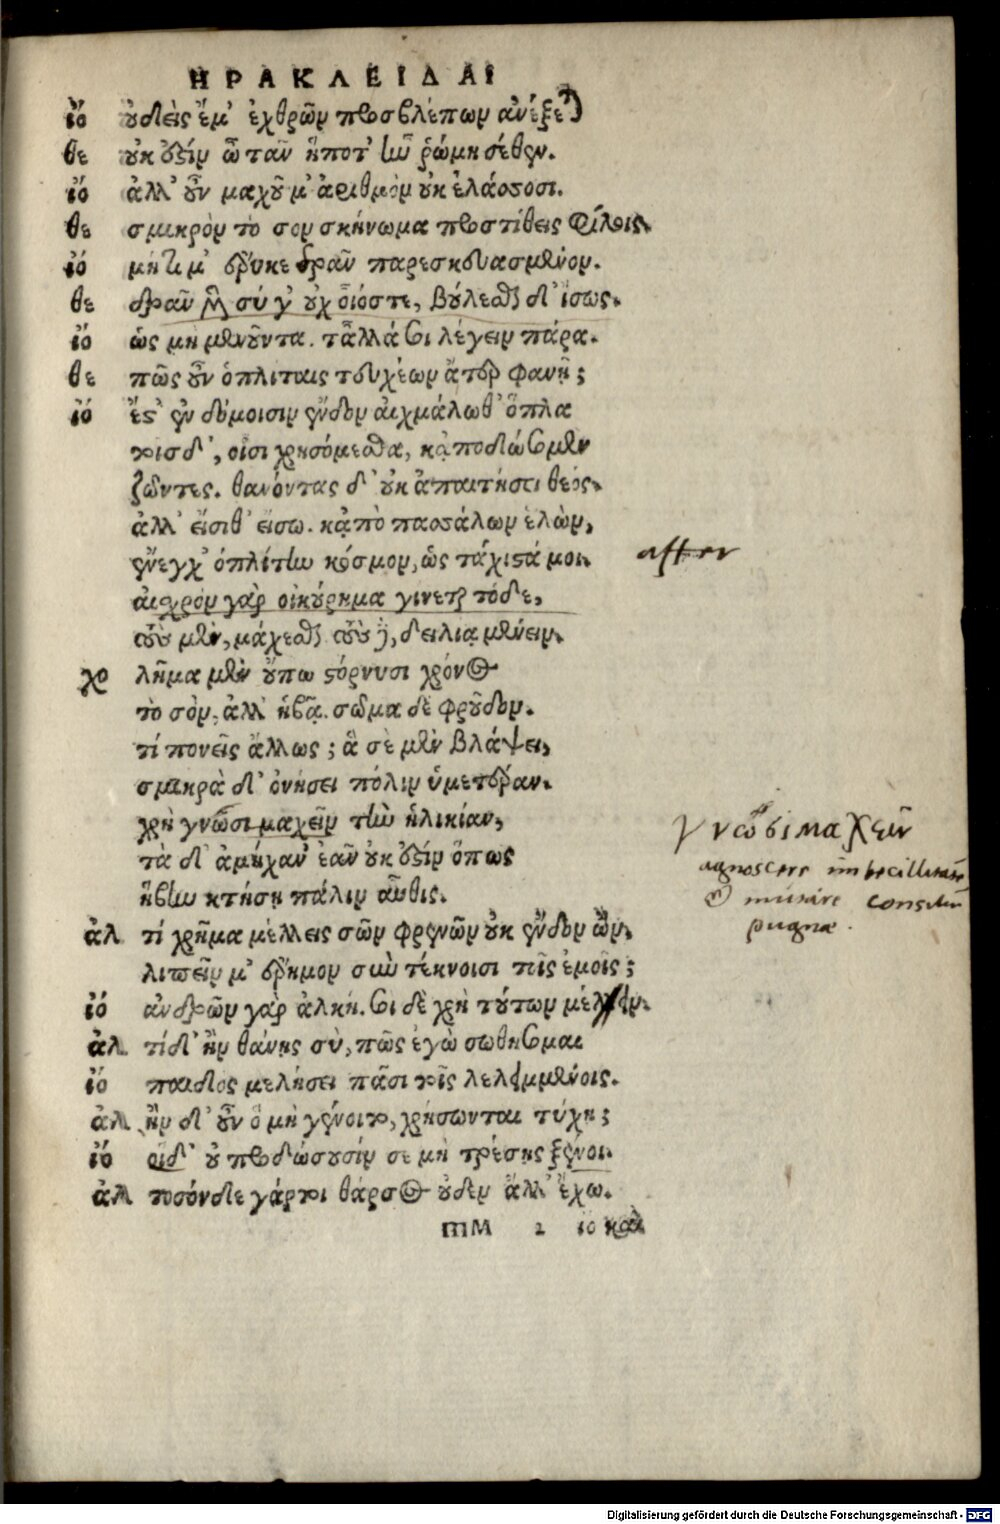 ΗΡΑΚΛΕΙΔΑΙ
ἰο οὐδεὶς ἔμ' ἐχθρῶν προσβλέπων ἀνέξεται
θε οὐκ ἔστιν ὦ τὰν ἥποτ' ἦν ῥώμη σέθεν.
ἰό ἀλλ' οὖν μαχοῦμ' ἀριθμὸν οὐκ ἐλάσσοσι.
θε σμικρὸν τὸ σον σκήνωμα προστίθεις φίλοις.
ἰό μήτι μ' ἔρυκε δρᾶν παρεσκευασμένον.
θε δρᾶν μὲν σύ γ' οὐχ οἷόστε, βούλεσθαι δ' ἴσως.
ἰό ὡς μὴ μενοῦντα. τἆλλά σοι λέγειν πάρα.
θε πῶς οὖν ὁπλίταις τευχέων ἄτερ φανῇ;
ἰό ἔστ' ἐν δόμοισιν ἔνδον αἰχμάλωθ' ὅπλα
τοισδ', οἷσι χρησόμεσθα, κἀποδώσομεν
ζῶντες. θανόντας δ' οὐκ ἀπαιτήσει θεός.
ἀλλ' εἴσιθ' εἴσω. κἀπὸ πασσάλων ἑλὼν,
ἔνεγχ' ὁπλίτην κόσμον, ὡς τάχιστά μοι.
after
αἰσχρὸν γὰρ οἰκούρημα γίνεται τόδε,
τοὺς μὲν, μάχεσθαι τοὺς δὲ, δειλίᾳ μένειν.
χο λῆμα μὲν οὔπω στόρνυσι χρόνος
τὸ σὸν, ἀλλ' ἡβᾷ. σῶμα δὲ φροῦδον.
τί πονεῖς ἄλλως; ἃ σὲ μὲν βλάψει,
σμικρὰ δ' ὀνήσει πόλιν ὑμετέραν.
χρὴ γνῶσι μαχεῖν τὴν ἡλικίαν,
τὰ δ' ἀμήχαν' ἐᾶν οὐκ ἔστιν ὅπως
ἥβην κτήσῃ πάλιν αὖθις.
γνωσιμαχεῖν
agnoscere imbecillitatem
& mutare consilium
pugnae.
ἀλ τί χρῆμα μέλλεις σῶν φρενῶν οὐκ ἔνδον ὢν,
λιπεῖν μ' ἔρημον σὺν τέκνοισι τοῖς ἐμοῖς;
ἰό ἀνδρῶν γὰρ ἀλκή. σοι δὲ χρὴ τούτων μέλειν.
ἀλ τί δ' ἢν θάνῃς σὺ, πῶς ἐγὼ σωθήσομαι
ἰο παιδὸς μελήσει πᾶσι τοῖς λελειμμένοις.
ἀλ ἢν δ' οὖν ὃ μὴ γένοιτο, χρήσωνται τύχῃ;
ἰο οἵδ' οὐ προδώσουσίν σε μὴ τρέσῃς ξένοι.
ἀλ τοσόνδε γάρτοι θάρσος οὐδὲν ἄλλ' ἔχω.
mM 2 ιο καὶ
Digitalisierung gefördert durch die Deutsche Forschungsgemeinschaft - DFG